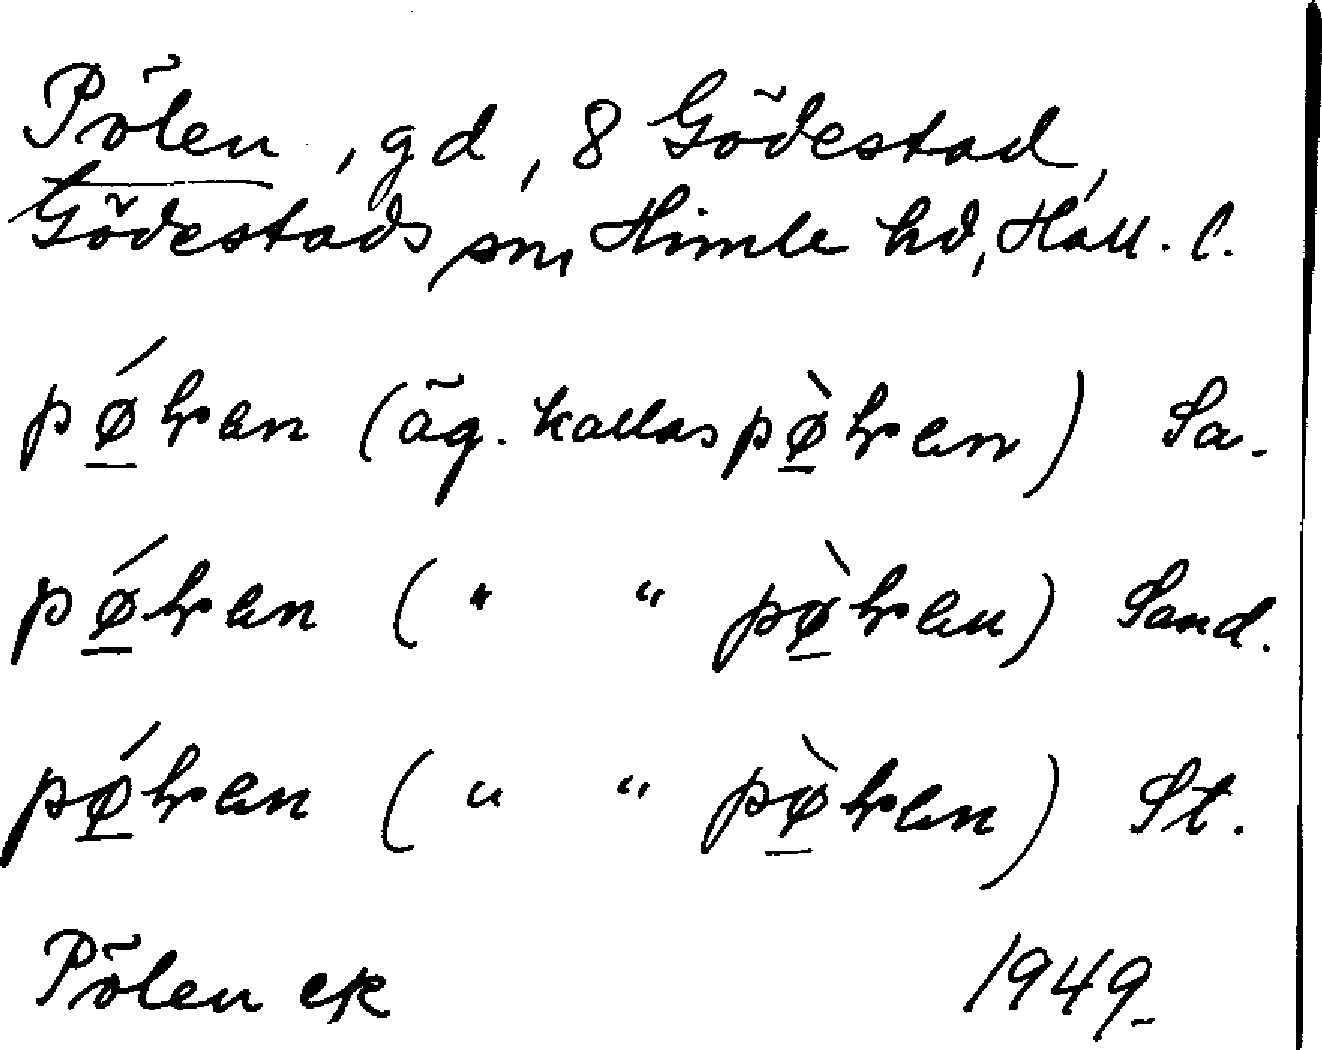 Pölen, gd, 8 Gödestad,
Gödestads sn, Himle hd, Hall. l.
pǿ̲ɫen (äg. kallas pø̲̀ɫen) Sa.
pǿ̲ɫen ( " " pø̲̀ɫen) Sand.
pǿ̲ɫen ( " " pø̲̀ɫen) St.
Pölen ek 1949.